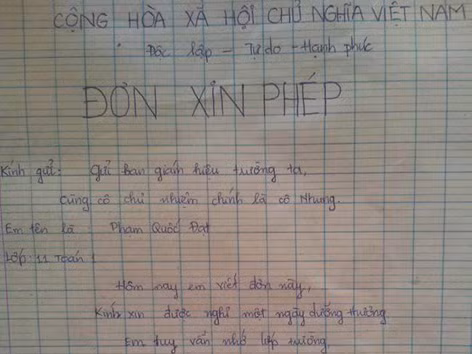 CỘNG HÒA XÃ HỘI CHỦ NGHĨA VIỆT NAM
Độc lập - Tự do - Hạnh phúc
ĐƠN XIN PHÉP
Kính gửi: Gửi ban giám hiệu trường ta,
Cùng cô chủ nhiệm chính là cô Nhung.
Em tên là Phạm Quốc Đạt
Lớp: 11 Toán 1
Hôm nay em viết đơn này,
Kính xin được nghỉ một ngày dưỡng thương
Em tuy vẫn nhớ lớp trường